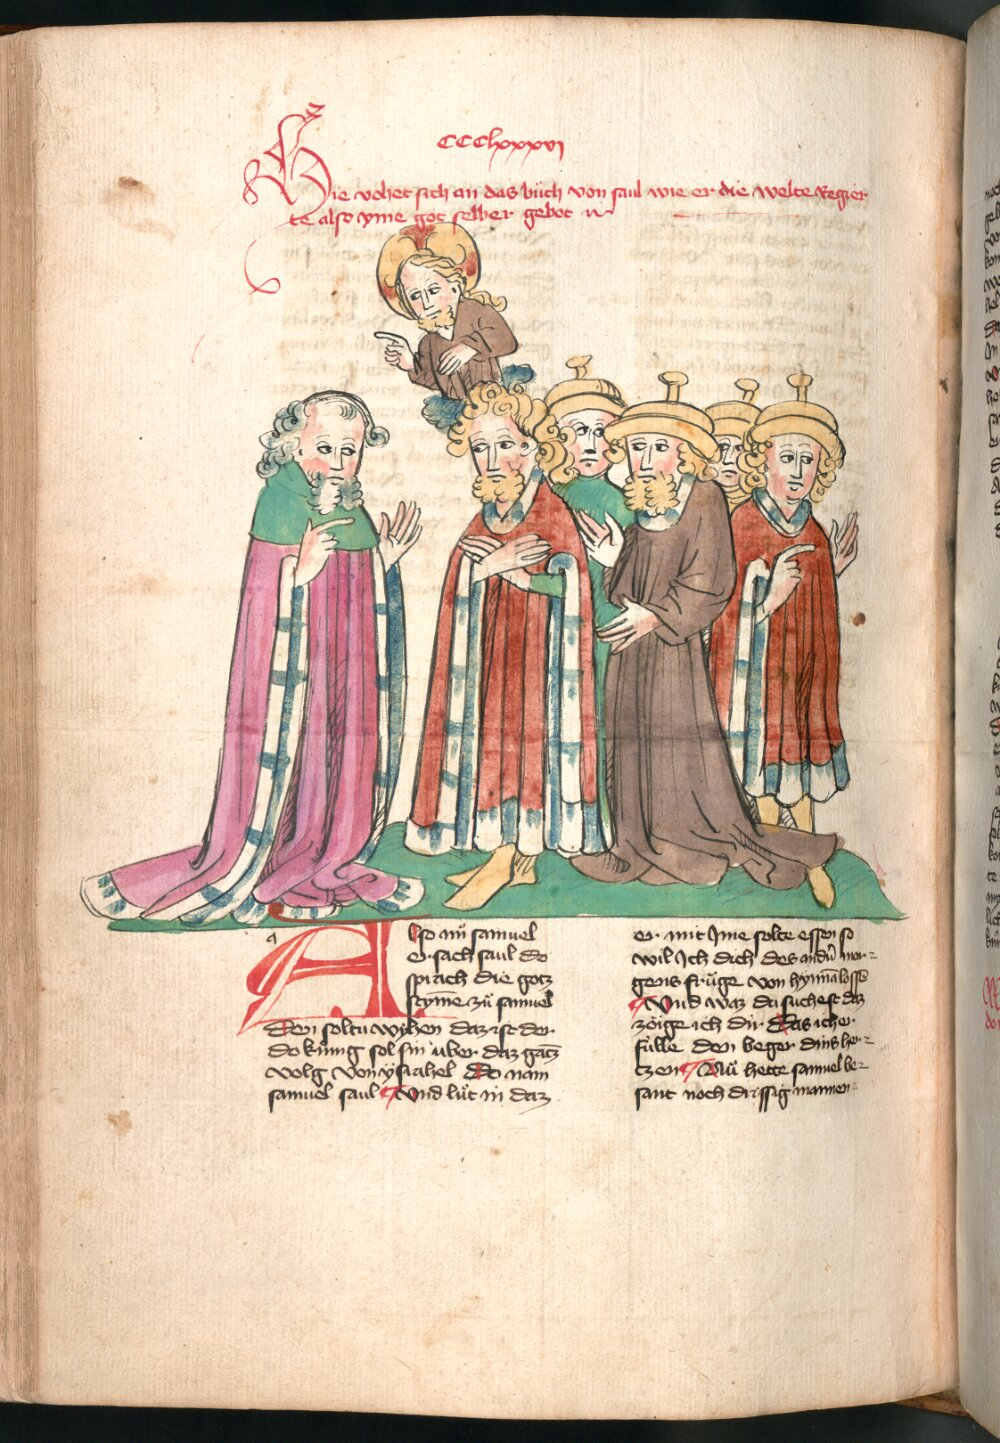 CCClxxxvi
Hie vohet sich an das buͤch von saul wie er die welte Regier
te also yme got selber gebot
Also nuͦ samuel
er sach saul do
sprach die gotz
stȳme zuͦ samuel
Den soltu wyhen daz ist der
do kúnig sol sin uͤber daz gātz
volg von ysrahel Do nam
samuel saul Vnd luͦt in daz
er mit Ime solte essen so
wil Ich dich des andrn mor=
gens fruͤge von hynnā lossē
Vnd waz du suchest daz
zoͤige ich dir Das ich er
fúlle den beger dins her=
tzen Nuͦ hette samuel be=
sant noch drissig mannen